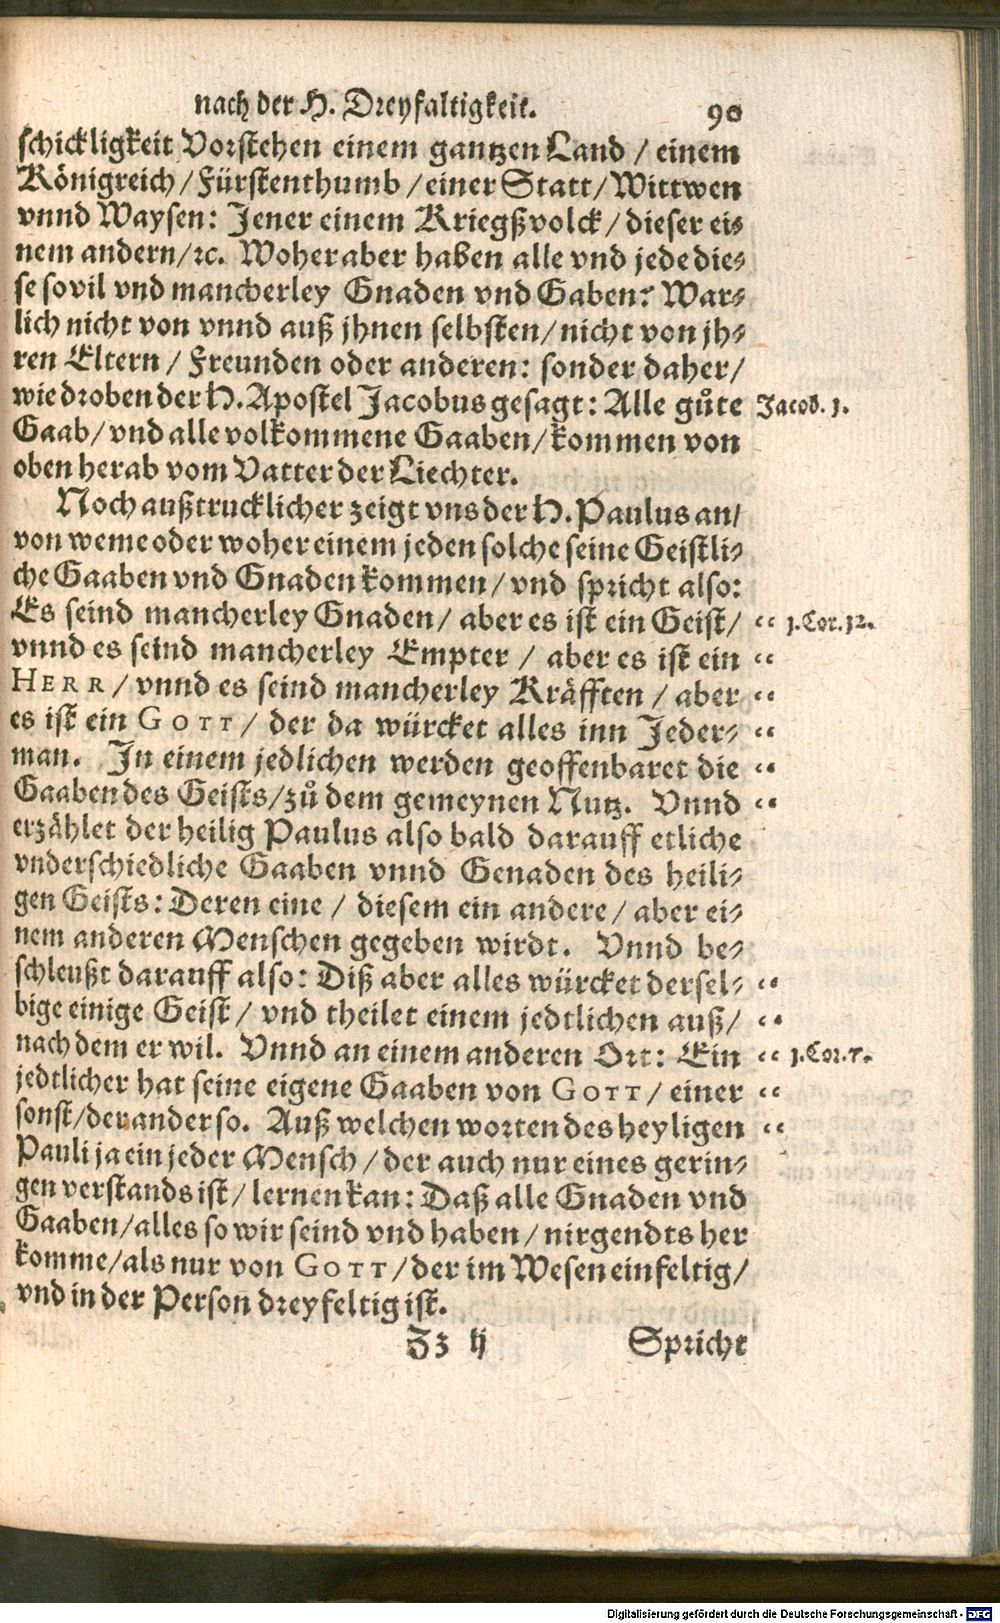 nach der H. Dreyfaltigkeit. 90
schickligkeit Vorstehen einem gantzen Land / einem
Königreich / Fürstenthumb / einer Statt / Wittwen
vnnd Waysen: Jener einem Kriegßvolck / dieser ei-
nem andern / ꝛc. Woher aber haben alle vnd jede die-
se sovil vnd mancherley Gnaden vnd Gaben? War-
lich nicht von vnnd auß jhnen selbsten / nicht von jh-
ren Eltern / Freunden oder anderen: sonder daher /
wie droben der H. Apostel Jacobus gesagt: Alle gůte Jacob. 1.
Gaab / vnd alle volkommene Gaaben / kommen von
oben herab vom Vatter der Liechter.
Noch außtrucklicher zeigt vns der H. Paulus an /
von weme oder woher einem jeden solche seine Geistli-
che Gaaben vnd Gnaden kommen / vnd spricht also:
Es seind mancherley Gnaden / aber es ist ein Geist / “ 1. Cor. 12.
vnnd es seind mancherley Empter / aber es ist ein “
HERR / vnnd es seind mancherley Kräfften / aber “
es ist ein GOTT / der da würcket alles inn Jeder- “
man. In einem jedlichen werden geoffenbaret die “
Gaaben des Geists / zů dem gemeynen Nutz. Vnnd “
erzählet der heilig Paulus also bald darauff etliche
vnderschiedliche Gaaben vnnd Genaden des heili-
gen Geists: Deren eine / diesem ein andere / aber ei-
nem anderen Menschen gegeben wirdt. Vnnd be-
schleußt darauff also: Diß aber alles würcket dersel- “
bige einige Geist / vnd theilet einem jedtlichen auß / “
nach dem er wil. Vnnd an einem anderen Ort: Ein “ 1. Cor. 7.
jedtlicher hat seine eigene Gaaben von GOTT / einer “
sonst / der ander so. Auß welchen worten des heyligen “
Pauli ja ein jeder Mensch / der auch nur eines gerin-
gen verstands ist / lernen kan: Daß alle Gnaden vnd
Gaaben / alles so wir seind vnd haben / nirgendts her
komme / als nur von GOTT / der im Wesen einfeltig /
vnd in der Person dreyfeltig ist.
Zz ij Spricht
Digitalisierung gefördert durch die Deutsche Forschungsgemeinschaft - DFG